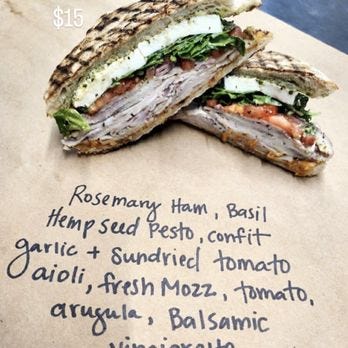 $15
Rosemary Ham, Basil
Hempseed Pesto, confit
garlic + Sundried tomato
aioli, fresh Mozz, tomato,
arugula, Balsamic